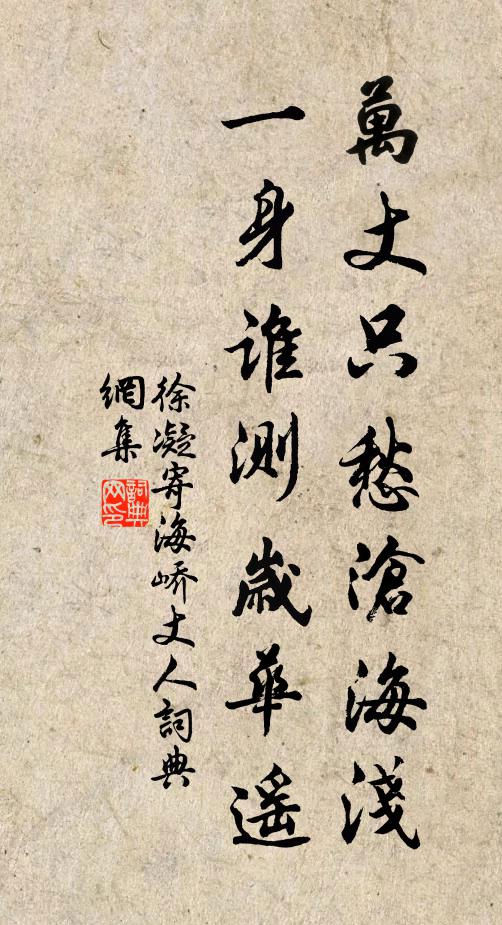 萬丈只愁滄海淺
一身誰測歲華遥
徐凝寄海嶠丈人詞典
網集
詞典网印